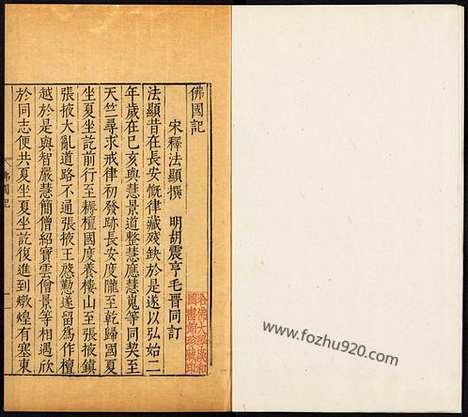 佛國記
宋釋法顯撰 明胡震亨毛晉同訂
法顯昔在長安慨律藏殘缺於是遂以弘始二
年歲在己亥與慧景道整慧應慧嵬等同契至
天竺尋求戒律初發跡長安度隴至乾歸國夏
坐夏坐訖前行至耨檀國度養樓山至張掖鎮
張掖大亂道路不通張掖王慇懃遂留爲作檀
越於是與智嚴慧簡僧紹寶雲僧景等相遇欣
於同志便共夏坐夏坐訖復進到燉煌有塞東
佛國記
哈佛大學漢和
圖書館珍藏印
www.fozhu920.com